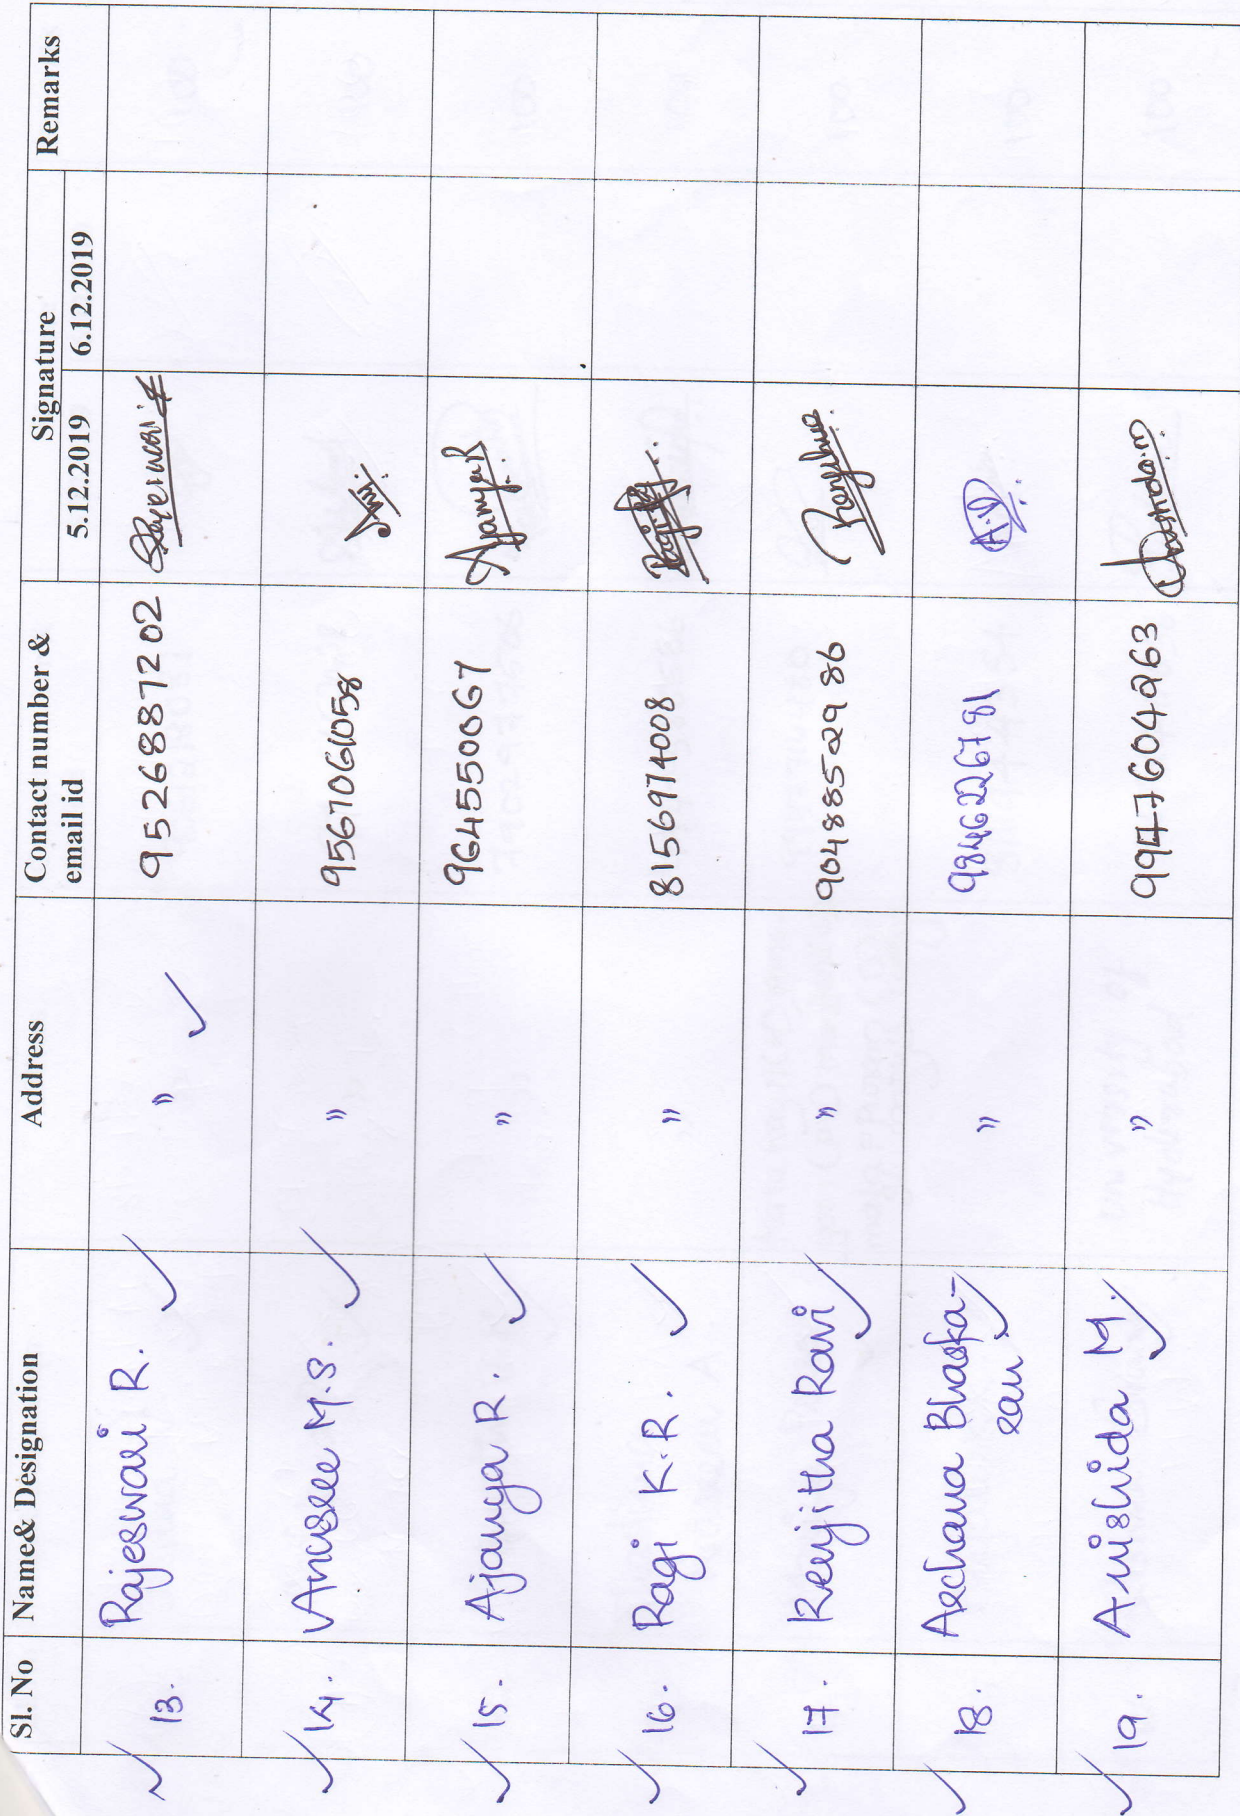 Sl. No Name& Designation Address Contact number & email id Signature Remarks
5.12.2019 6.12.2019
13. Rajeswari R. " 9526887202 Rajeswari R
14. Anusree M.S. " 9567061058
15. Ajanya R. " 9645550067 Ajanya R
16. Ragi K.R. " 8156974008 Ragi K R
17. Renjitha Ravi " 9048852986 Renjitha
18. Archana Bhaska-
ran " 9846226781
19. Anishida M. " 9947604263